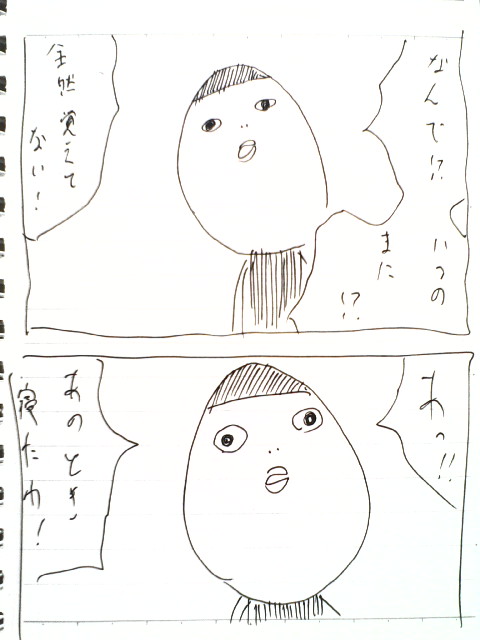 なんで!?
いつの
まに
!?
全然覚えて
ない!
あっ!!
あのとき
寝たわ!